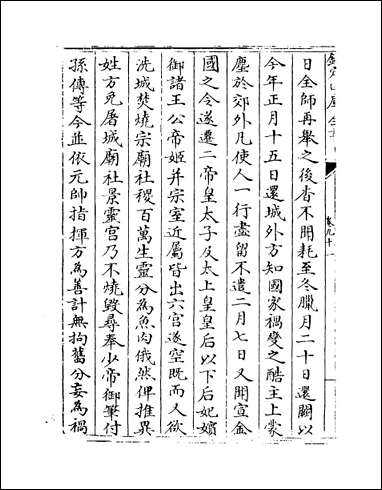 欽定四庫全書
卷九十一
日全師再舉之後杳不聞耗至冬臘月二十日還闕以
今年正月十五日還城外方知國家禍變之酷主上蒙
塵於郊外凡使人一行盡留不遣二月七日又聞宣金
國之令遂遷二帝皇太子及太上皇皇后以下后妃嬪
御諸王公帝姬并宗室近屬皆出六宮遂空既而人欲
洗城焚燒宗廟社稷百萬生靈分為魚肉俄然俾推異
姓方免屠城廟社景靈宮乃不燒毀尋奉少帝御筆付
孫傅等今並依元帥指揮方為善計無拘舊分妄為禍